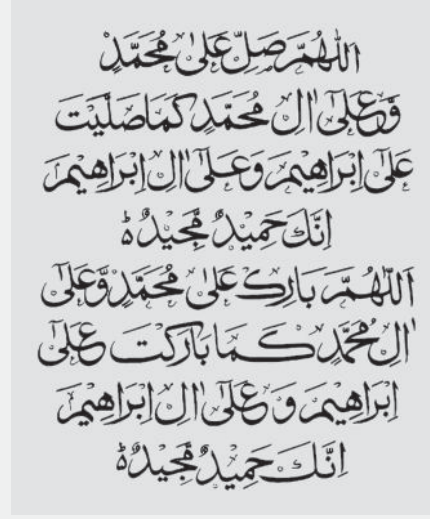 اَللّٰهُمَّ صَلِّ عَلٰى مُحَمَّدٍ
وَّعَلٰٓى اٰلِ مُحَمَّدٍ كَمَا صَلَّيْتَ
عَلٰٓى اِبْرَاهِيْمَ وَعَلٰٓى اٰلِ اِبْرَاهِيْمَ
اِنَّكَ حَمِيْدٌ مَّجِيْدٌ ؕ
اَللّٰهُمَّ بَارِكْ عَلٰى مُحَمَّدٍ وَّعَلٰٓى
اٰلِ مُحَمَّدٍ كَمَا بَارَكْتَ عَلٰٓى
اِبْرَاهِيْمَ وَ عَلٰٓى اٰلِ اِبْرَاهِيْمَ
اِنَّكَ حَمِيْدٌ مَّجِيْدٌ ؕ